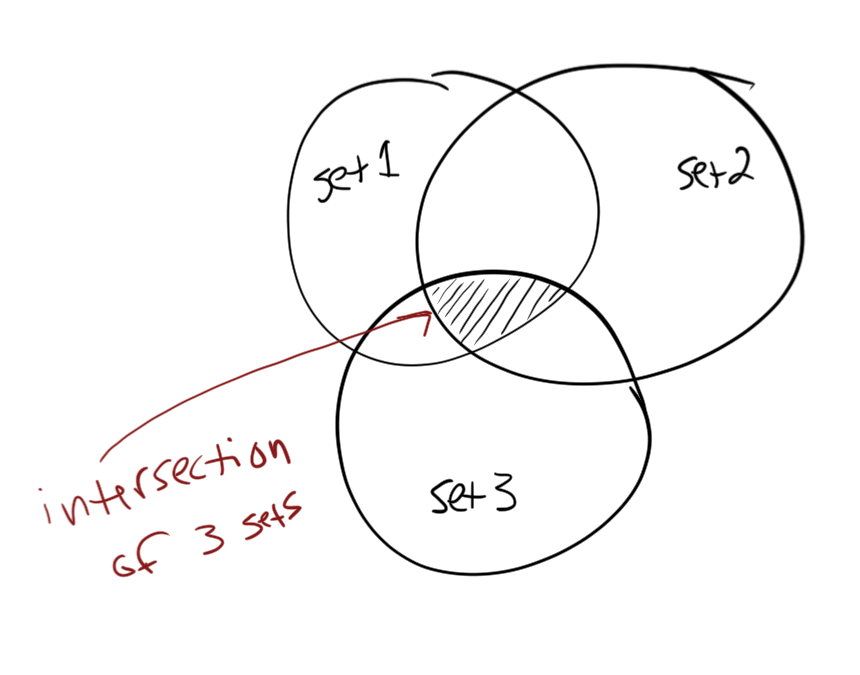 set 1
set 2
set 3
intersection
of 3 sets